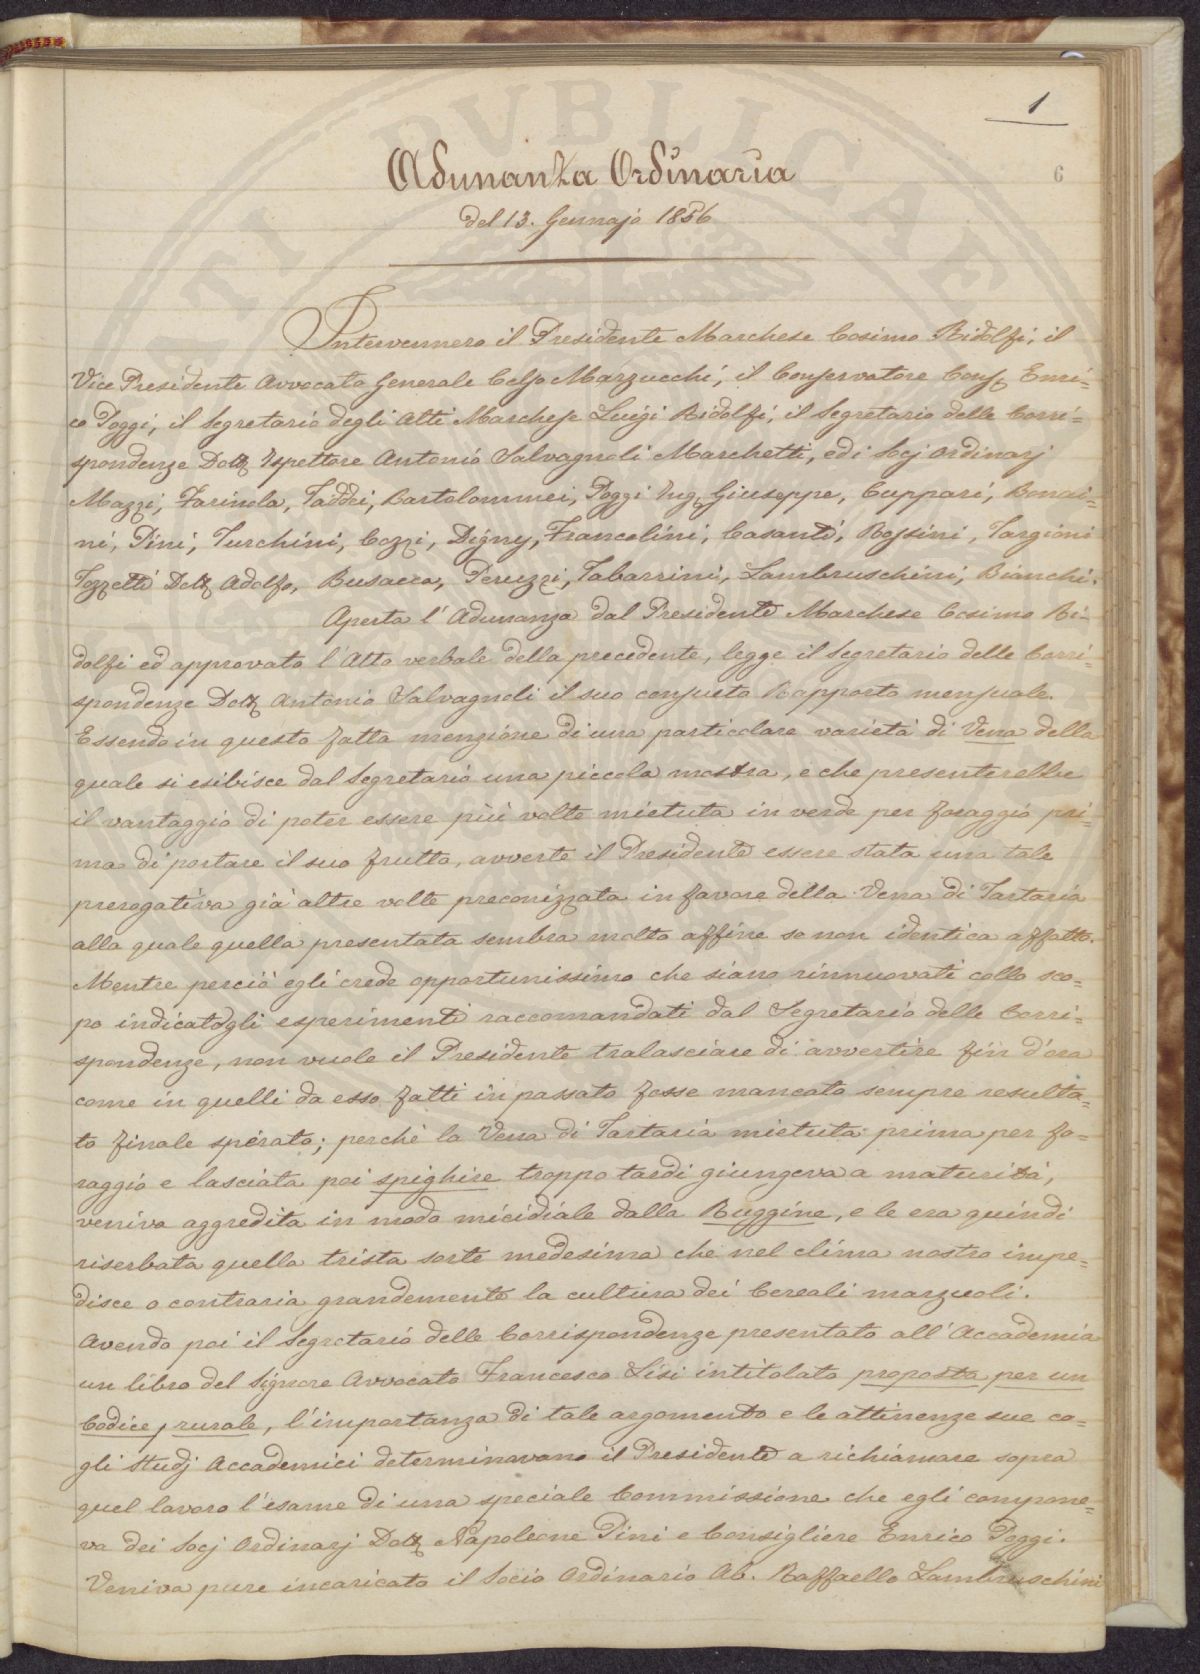 1
6
Adunanza Ordinaria
del 13. Gennajo 1856
Intervennero il Presidente Marchese Cosimo Ridolfi, il
Vice Presidente Avvocato Generale Celso Marzucchi, il Conservatore Cons. Enri=
co Poggi, il Segretario degli Atti Marchese Luigi Ridolfi, il Segretario delle Corri=
spondenze Dott. Ispettore Antonio Salvagnoli Marchetti, ed i Socj Ordinarj
Mazzi, Farinola, Taddei, Bartolommei, Poggi Ing. Giuseppe, Cuppari, Bonai=
ni, Pini, Turchini, Cozzi, Digny, Francolini, Casanti, Rossini, Targioni
Tozzetti Dott. Adolfo, Busacca, Peruzzi, Tabarrini, Lambruschini, Bianchi.
Aperta l'Adunanza dal Presidente Marchese Cosimo Ri=
dolfi ed approvato l'Atto verbale della precedente, legge il Segretario delle Corri=
spondenze Dott. Antonio Salvagnoli il suo consueto Rapporto mensuale.
Essendo in questo fatta menzione di una particolare varietà di Vena della
quale si esibisce dal Segretario una piccola mostra, e che presenterebbe
il vantaggio di poter essere più volte mietuta in verde per foraggio pri=
ma di portare il suo frutto, avverte il Presidente essere stata una tale
prerogativa già altre volte preconizzata in favore della Vena di Tartaria
alla quale quella presentata sembra molto affine se non identica affatto.
Mentre perciò egli crede opportunissimo che siano rinnuovati collo sco=
po indicato gli esperimenti raccomandati dal Segretario delle Corri=
spondenze, non vuole il Presidente tralasciare di avvertire fin d'ora
come in quelli da esso fatti in passato fosse mancato sempre resulta=
to finale sperato; perchè la Vena di Tartaria mietuta prima per fo=
raggio e lasciata poi spighire troppo tardi giungeva a maturità,
veniva aggredita in modo micidiale dalla Ruggine, e le era quindi
riserbata quella trista sorte medesima che nel clima nostro impe=
disce o contraria grandemente la cultura dei Cereali marzuoli.
Avendo poi il Segretario delle Corrispondenze presentato all'Accademia
un libro del Signore Avvocato Francesco Lisi intitolato proposta per un
Codice rurale, l'importanza di tale argomento e le attinenze sue co=
gli Studj Accademici determinavano il Presidente a richiamare sopra
quel lavoro l'esame di una speciale Commissione che egli compone=
va dei Socj Ordinarj Dott. Napoleone Pini e Consigliere Enrico Poggi.
Veniva pure incaricato il Socio Ordinario Ab. Raffaello Lambruschini